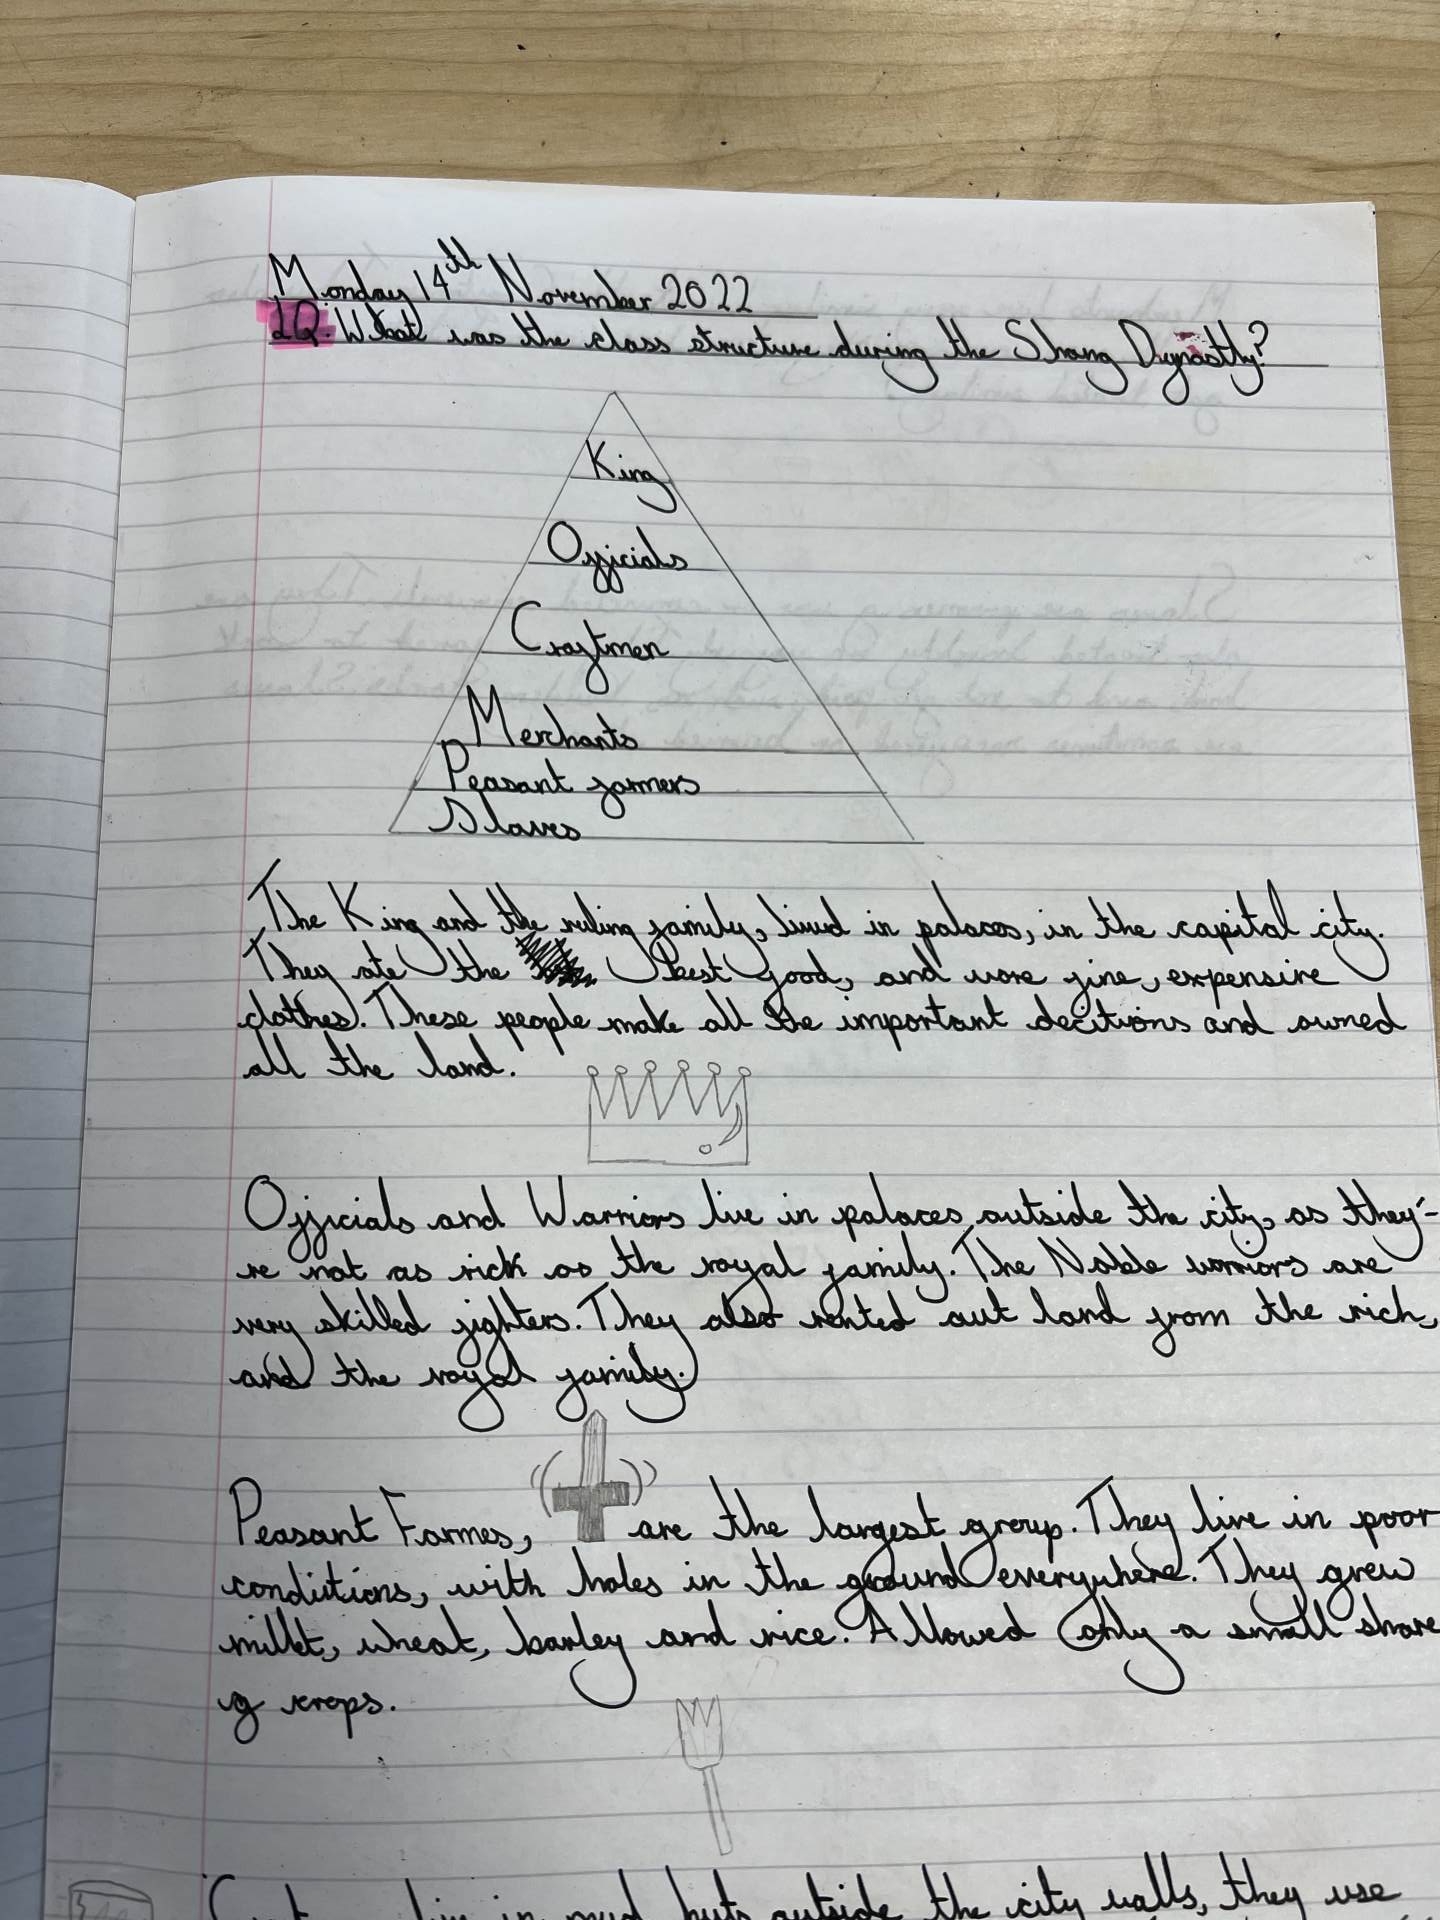 Monday 14th November 2022
LQ: What was the class structure during the Shang Dynastly?
King
Officials
Craftmen
Merchants
Peasant farmers
Slaves
The King and the ruling family, lived in palaces, in the capital city.
They ate the best food, and wore fine, expensive
clothes. These people make all the important decitions and owned
all the land.
Officials and Warriors live in palaces outside the city, as they'-
re not as rich as the royal family. The Noble warriors are
very skilled fighters. They also rented out land from the rich,
and the royal family.
Peasant Farmes, are the largest group. They live in poor
conditions, with holes in the ground everywhere. They grew
millet, wheat, barley and rice. Allowed only a small share
of crops.
live in mud huts outside the city walls, they use